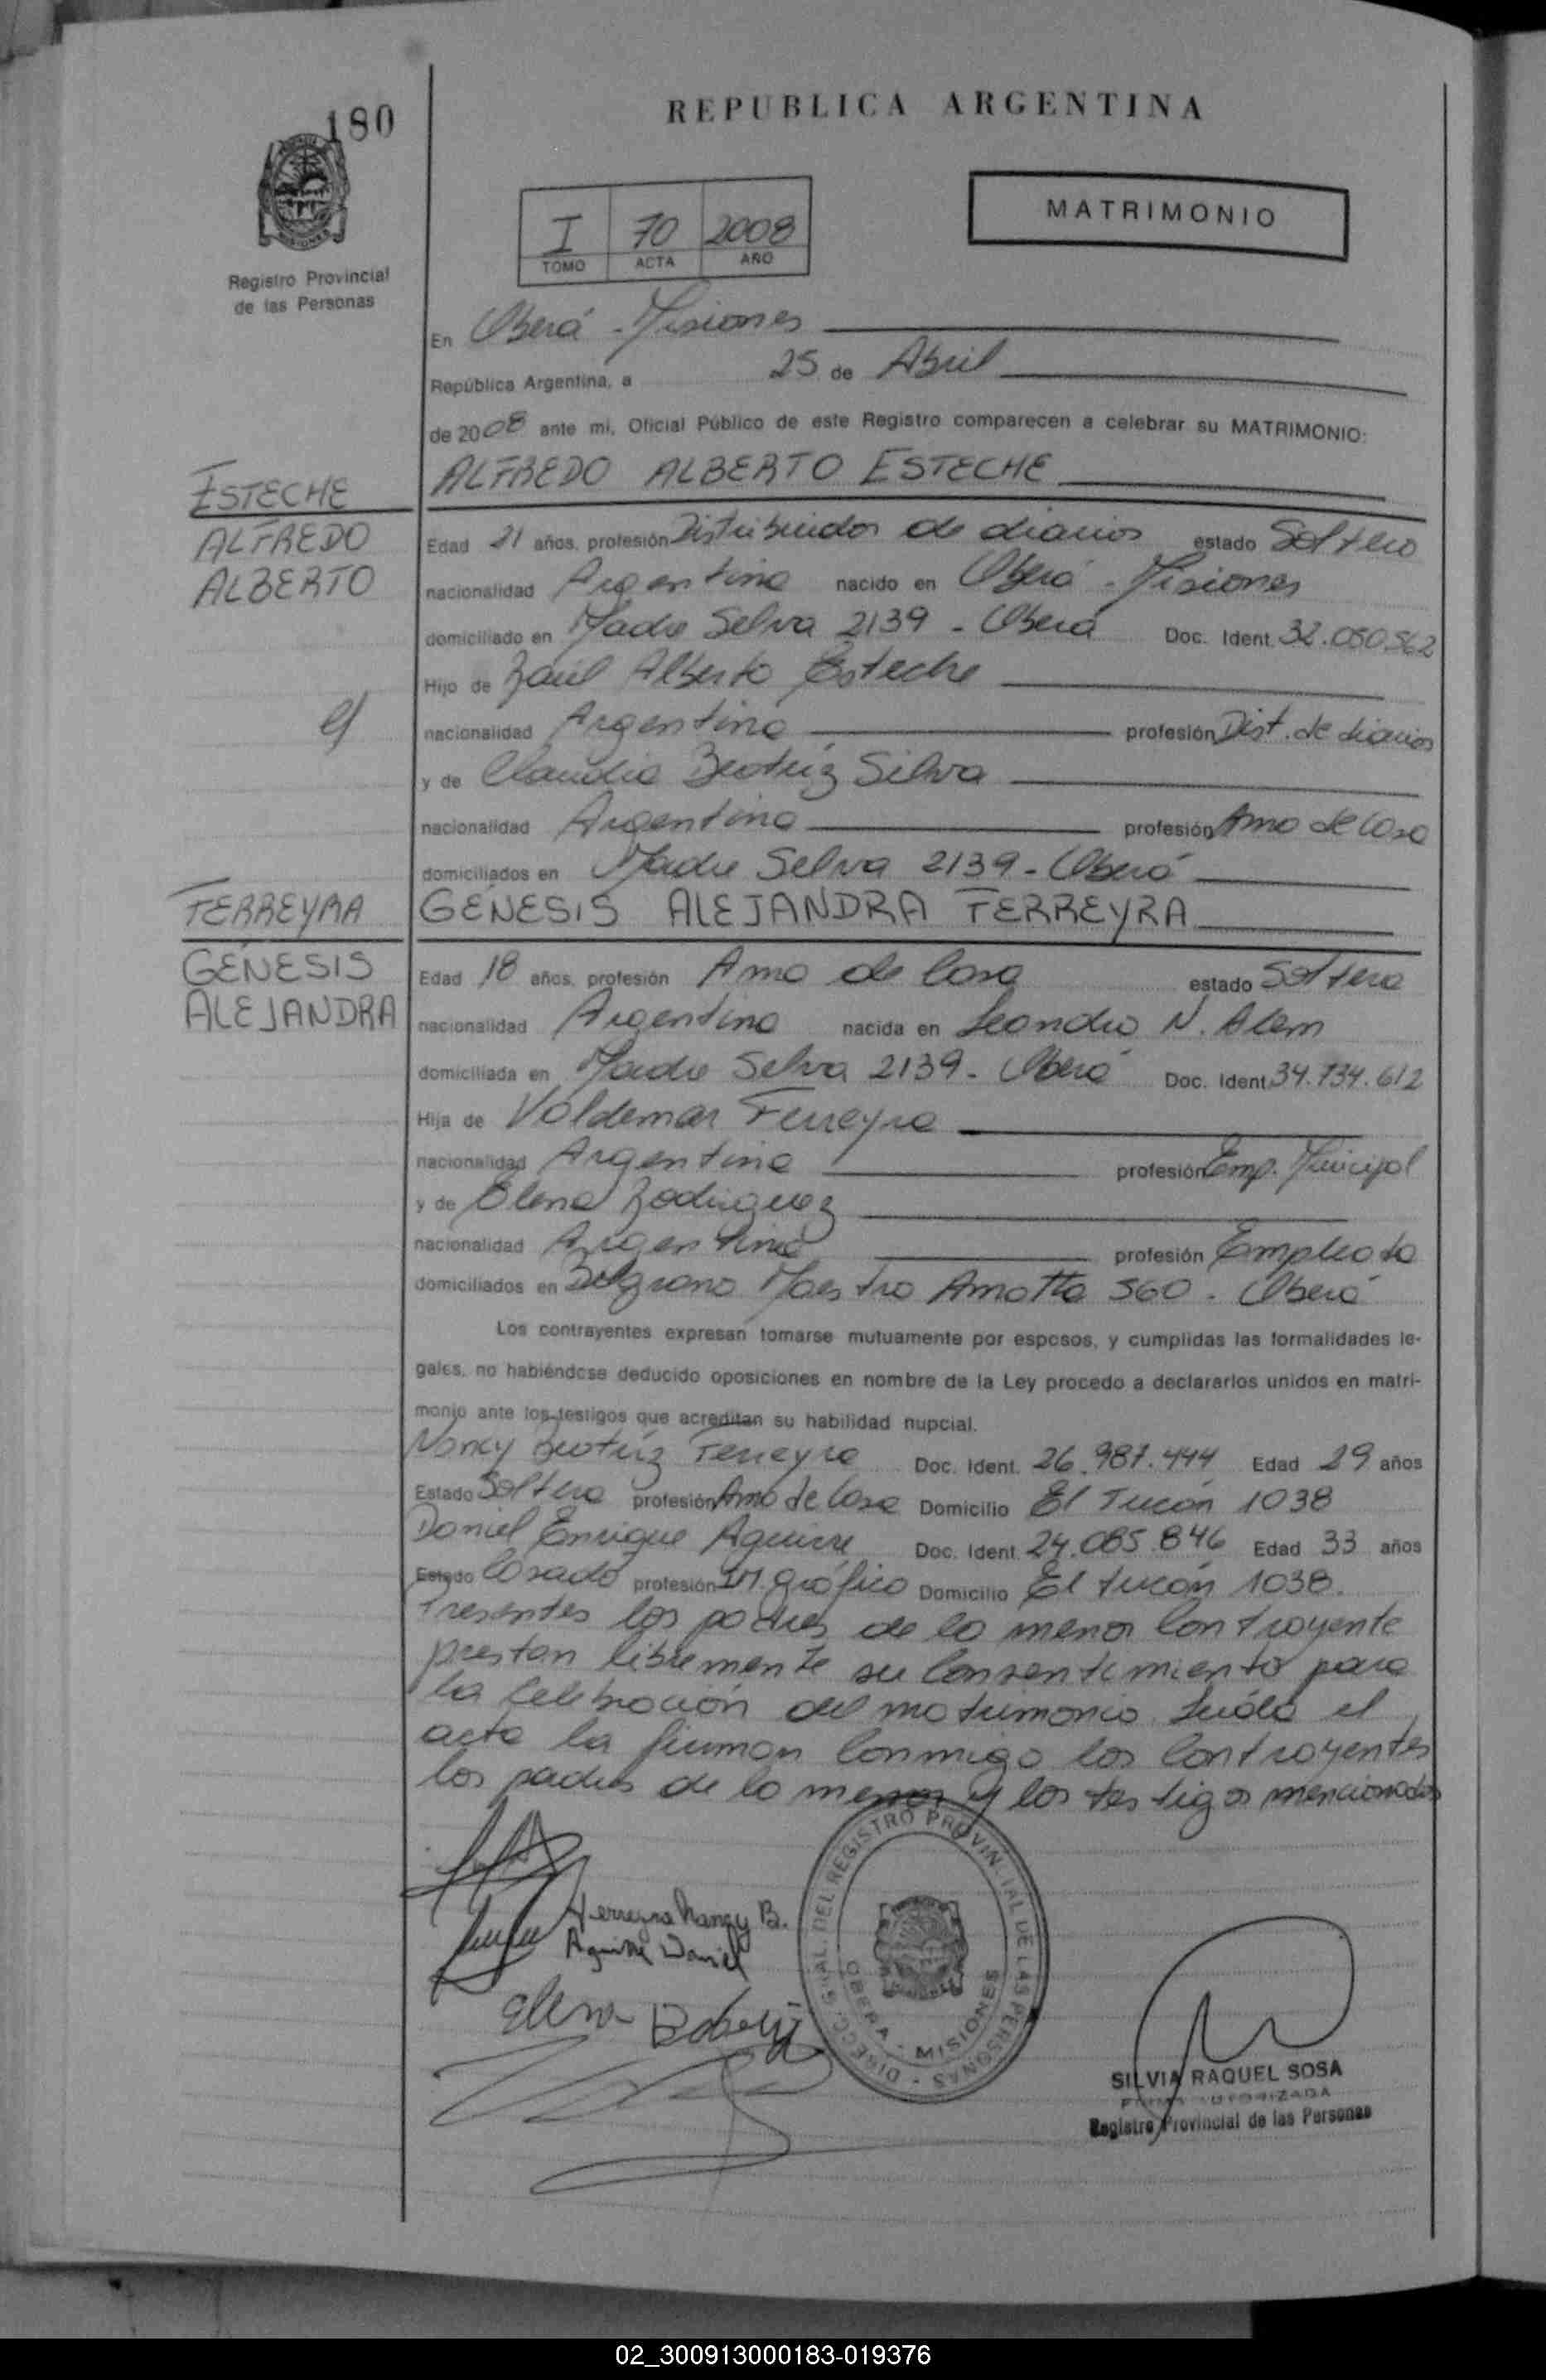 180
REPUBLICA ARGENTINA
MATRIMONIO
I 70 2008
TOMO ACTA AÑO
Registro Provincial
de las Personas
En Oberá - Misiones
República Argentina, a 25 de Abril
de 2008 ante mi, Oficial Público de este Registro comparecen a celebrar su MATRIMONIO:
ESTECHE
ALFREDO
ALBERTO
ALFREDO ALBERTO ESTECHE
Edad 21 años, profesión Distribuidor de diarios estado Soltero
nacionalidad Argentina nacido en Oberá - Misiones
domiciliado en Madre Selva 2139 - Oberá Doc. Ident. 32.050.562
Hijo de Raúl Alberto Esteche
nacionalidad Argentina profesión Dist. de diarios
y de Claudia Beatríz Silva
nacionalidad Argentina profesión Ama de Casa
domiciliados en Madre Selva 2139 - Oberá
FERREYRA
GÉNESIS
ALEJANDRA
GÉNESIS ALEJANDRA FERREYRA
Edad 18 años, profesión Ama de Casa estado Soltera
nacionalidad Argentina nacida en Leandro N. Alem
domiciliada en Madre Selva 2139 - Oberá Doc. Ident. 34.734.612
Hija de Valdemar Ferreyra
nacionalidad Argentina profesión Emp. Municipal
y de Elena Rodriguez
nacionalidad Argentina profesión Empleada
domiciliados en Belgrano Maestro Amatta 560 - Oberá
Los contrayentes expresan tomarse mutuamente por esposos, y cumplidas las formalidades le-
gales, no habiéndose deducido oposiciones en nombre de la Ley procedo a declararlos unidos en matri-
monio ante los testigos que acreditan su habilidad nupcial.
Nancy Beatríz Ferreyra Doc. Ident. 26.987.444 Edad 29 años
Estado Soltera profesión Ama de Casa Domicilio El Tucán 1038
Daniel Enrique Aguirre Doc. Ident. 24.085.846 Edad 33 años
Estado Casado profesión gráfico Domicilio El tucán 1038.
Presentes los padres de la menor Contrayente
prestan libremente su Consentimiento para
la Celebración del matrimonio. Leída el
acta la firman Conmigo los Contrayentes
los padres de la menor y los testigos mencionados
Ferreyra Nancy B.
Aguirre Daniel
Elena
DIRECC. GRAL. DEL REGISTRO PROVINCIAL DE LAS PERSONAS
OBERA - MISIONES
SILVIA RAQUEL SOSA
FIRMA AUTORIZADA
Registro Provincial de las Personas
02_300913000183-019376